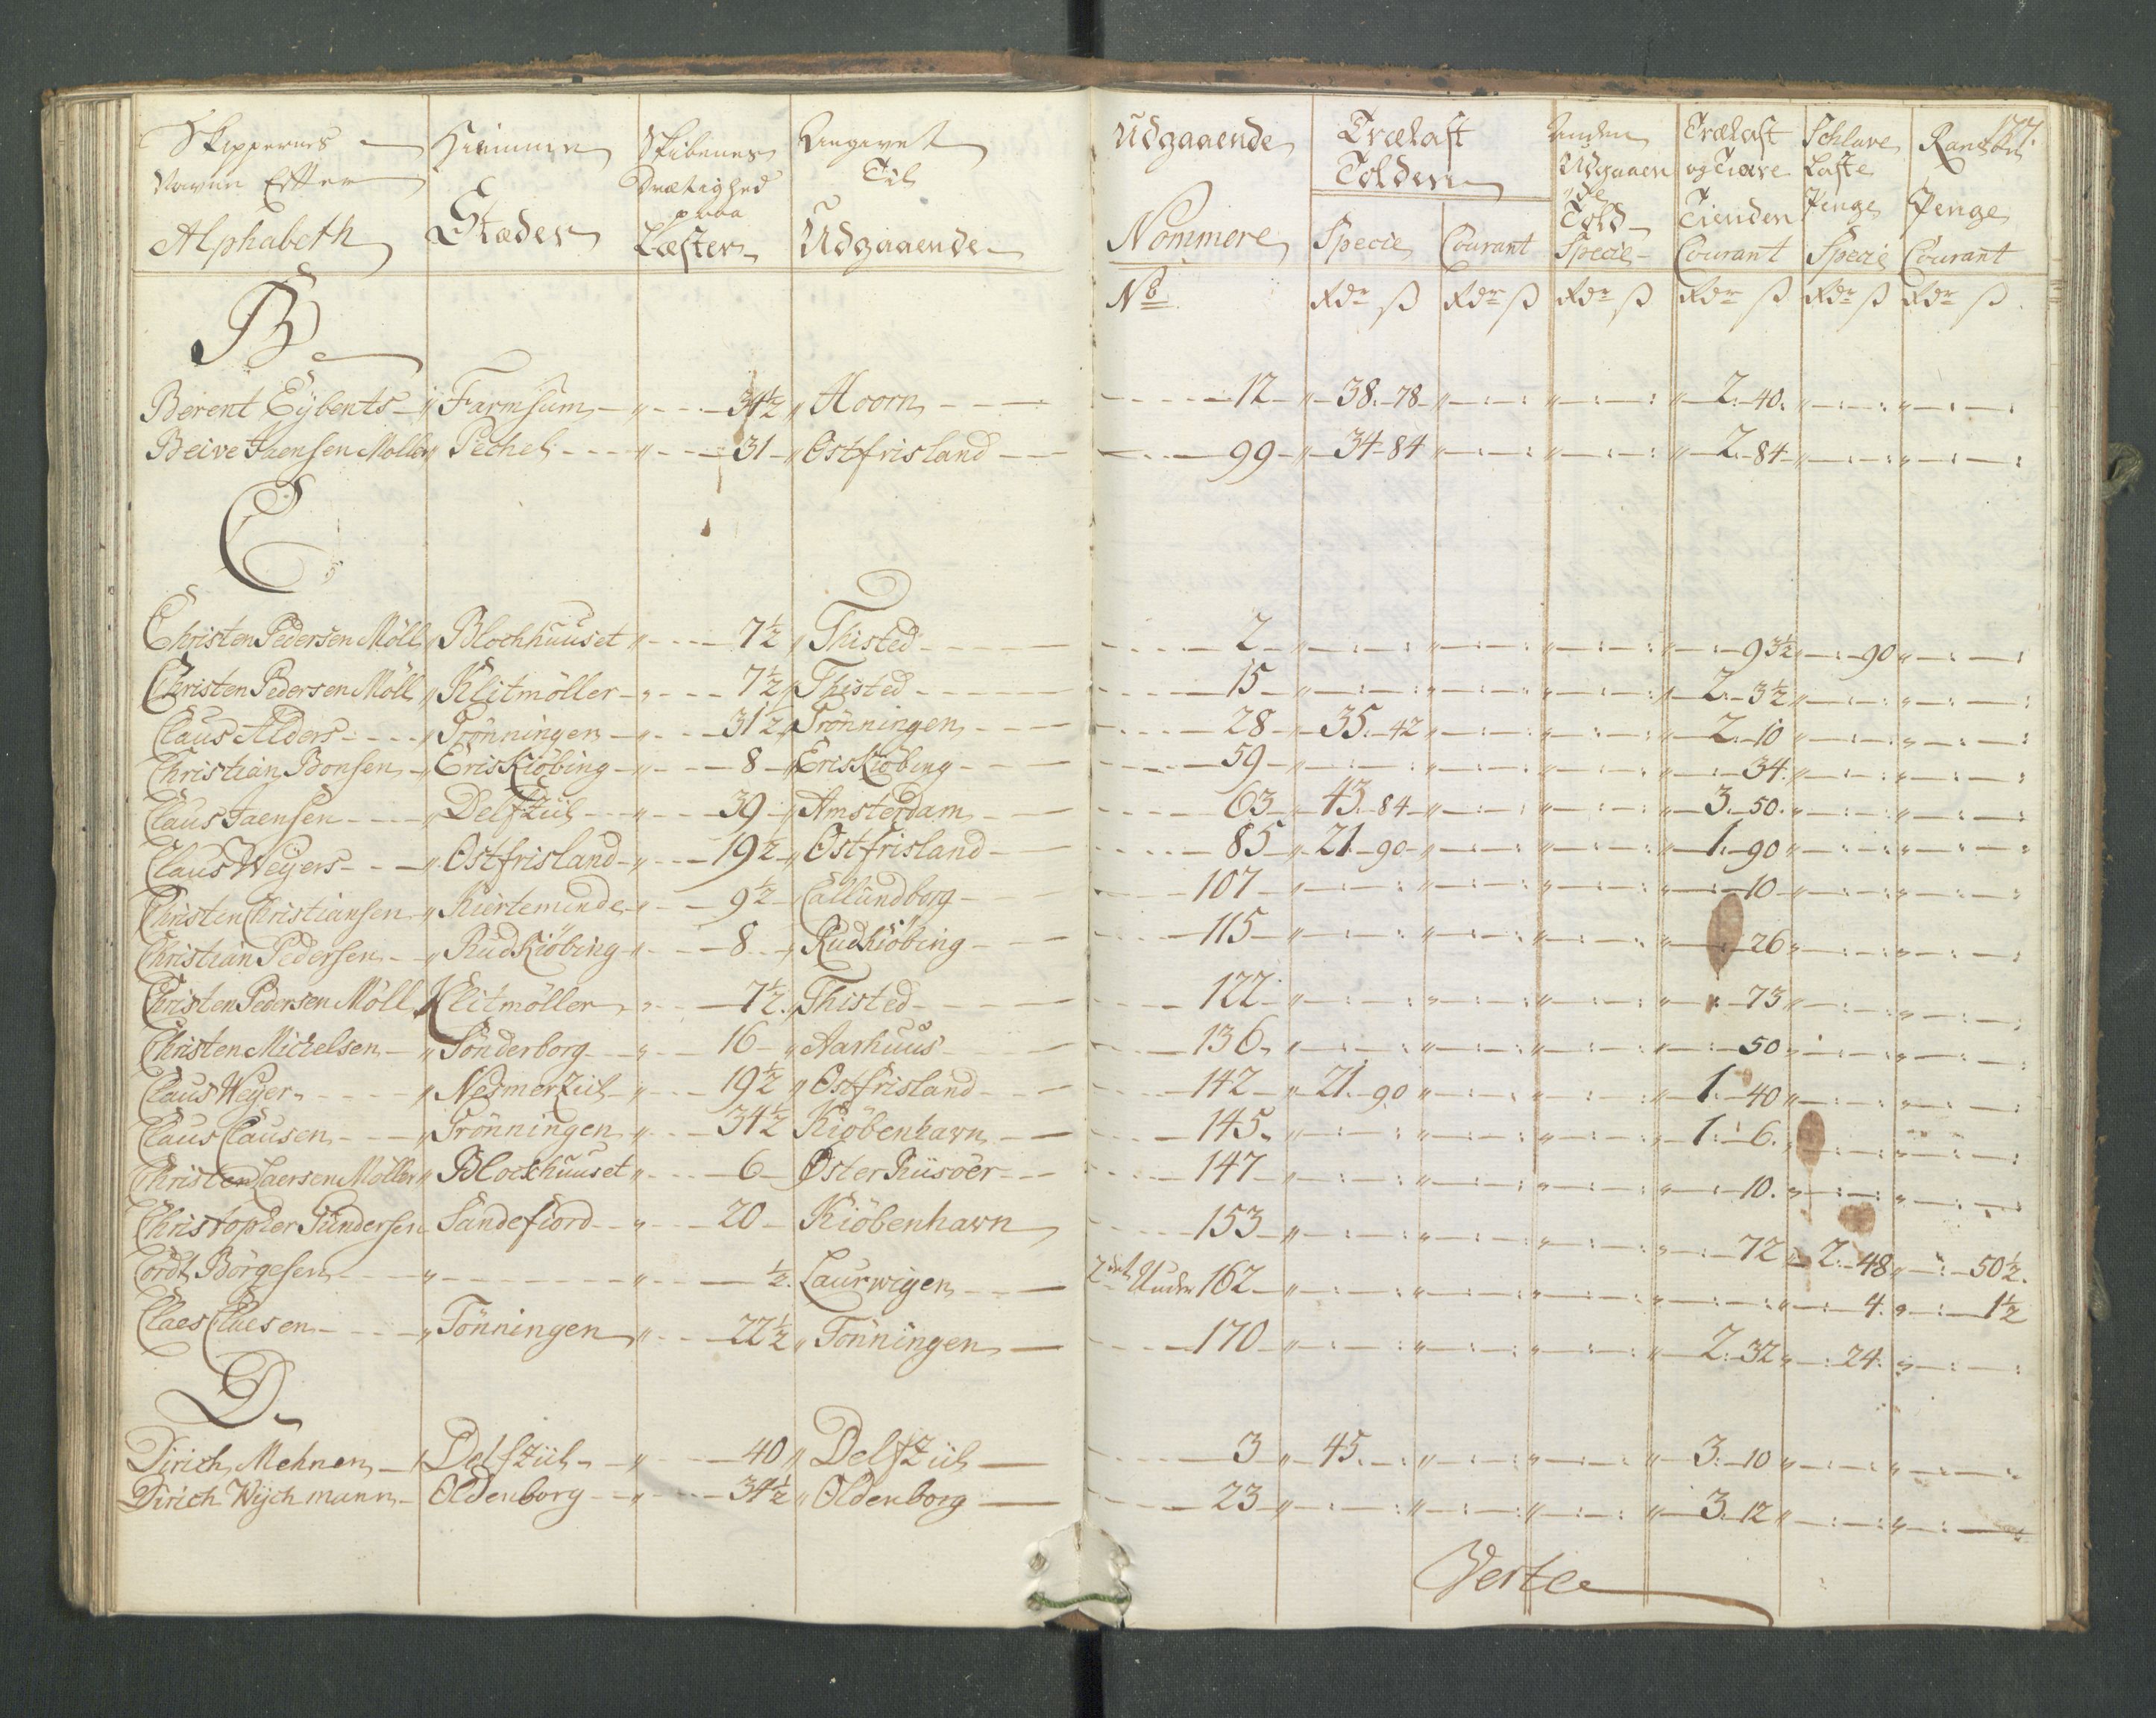 Skippernes Hiemme Skibenes Angivet Udgaaende Trælast Anden Trælast Schlave Randzons 177.
Navne Efter Stæder Drætighed Til Tolden Udgaaen og Tiære Laste
Alphabeth paa Læster Udgaaende Nommere Specie Courant de Told Specie Tienden Courant Penge Specie Penge Courant
No Rdr ß Rdr ß Rdr ß Rdr ß Rdr ß Rdr ß
B
Berent Eybents Farmsum 31½ Hoorn 12 38. 78 2. 40.
Beive Jaensen Moller Pechel 31 Ostfrisland 99 34 84 2. 84
C
Christen Pedersen Möll Blochhuuset 7½ Thisted 2 93½ 90
Christen Pedersen Möll Klitmöller 7½ Thisted 15 2. 3½
Claus Alders Grönningen 31½ Grönningen 28 35. 42 2. 10
Christian Bonsen Eriskiöbing 8 Eriskiöbing 59 34.
Claus Jaensen Delfziil 39 Amsterdam 63 43. 84 3. 50.
Claus Weyers Ostfrisland 19½ Ostfrisland 85 21. 90 1. 90
Christen Christiansen Kierteminde 9½ Callundborg 107 10
Christian Pedersen Rudkiöbing 8 Rudkiöbing 115 26
Christen Pedersen Möll Klitmöller 7½ Thisted 122 73
Christen Michelsen Sönderborg 16 Aarhuus 136 50
Claus Weyer Nesmerziil 19½ Ostfrisland 142 21. 90 1. 40
Claus Clausen Grönningen 34½ Kiöbenhavn 145 1. 6.
Christen Laersen Möller Blockhuuset 6 Öster Riisöer 147 10.
Christopher Gundersen Sandefiord 20 Kiöbenhavn 153 72 2. 48 50½.
Cordt Börgesen ½. Laurwigen 2det Under 162 4. 1½
Claes Claesen Tönningen 22½ Tönningen 170 2. 32 24.
D
Dirich Mehnen Delfziil 40 Delfziil 3 45. 3. 10
Dirich Wychmann Oldenborg 34½ Oldenborg 23 3. 12
Verte